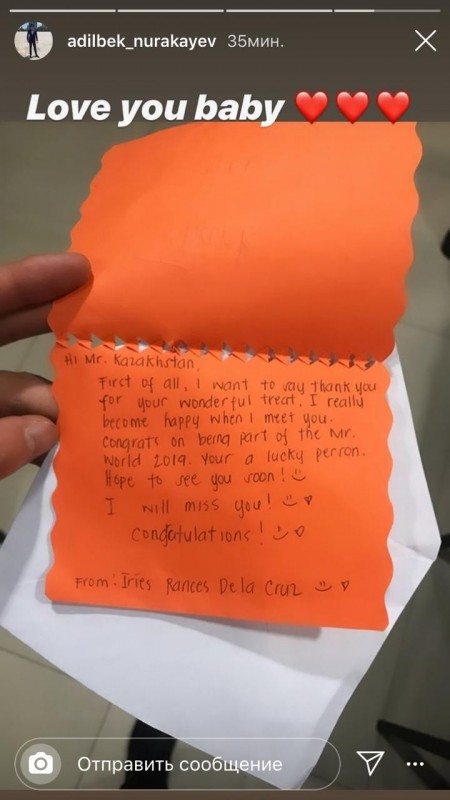 adilbek_nurakayev 35мин.
Love you baby ❤️❤️❤️
Hi Mr. Kazakhstan,
First of all, I want to say thank you
for your wonderful treat. I really
become happy when I meet you.
Congrats on being part of the Mr.
World 2019. Your a lucky person.
Hope to see you soon! ☺
I will miss you! ☺ ♡
Congratulations! ☺ ♡
From: Iries Rances Dela Cruz ☺ ♡
Отправить сообщение